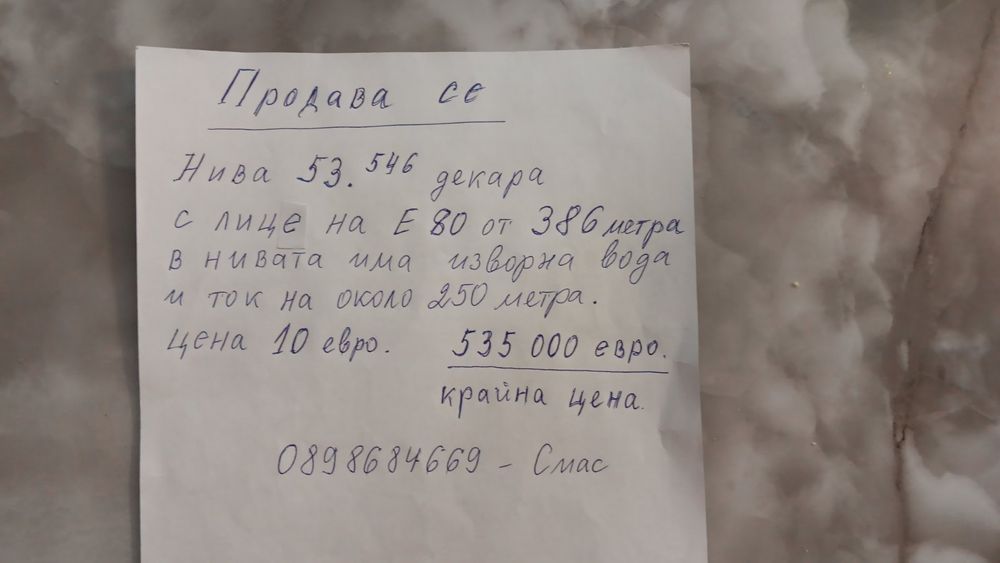 Продава се
Нива 53.546 декара
с лице на Е 80 от 386 метра
в нивата има изворна вода
и ток на около 250 метра.
цена 10 евро. 535 000 евро.
крайна цена.
0898684669 - Смас